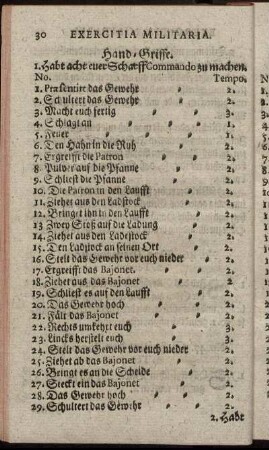 30 EXERCITIA MILITARIA.
Hand-Griffe.
1. Habt acht euer Scharff Commando zu machen.
No. Tempo.
1. Præsentirt das Gewehr 2.
2. Schultert das Gewehr 2.
3. Macht euch fertig 3.
4. Schlagt an 1.
5. Feuer 1.
6. Den Hahn in die Ruh 2.
7. Ergreifft die Patron 2.
8. Pulver auf die Pfanne 2.
9. Schliest die Pfanne 2.
10. Die Patron in den Laufft 2.
11. Ziehet aus den Ladstock 2.
12. Bringet ihn in den Laufft 2.
13 Zwey Stoß auf die Ladung 2.
14. Ziehet aus den Ladestock 2.
15. Den Ladstock an seinen Ort 2.
16. Stelt das Gewehr vor euch nieder 2.
17. Ergreifft das Bajonet. 2.
18. Ziehet aus das Bajonet 2
19. Schliest es auf den Laufft 2.
20. Das Gewehr hoch 2.
21. Fält das Bajonet 2.
22. Rechts umkehrt euch 3.
23. Lincks herstelt euch 3.
24. Stelt das Gewehr vor euch nieder 2.
25. Ziehet ab das Bajonet 2.
26. Bringt es an die Scheide 2.
27. Steckt ein das Bajonet 2.
28. Das Gewehr hoch 2.
29. Schultert das Gewehr 2.
2. Habt